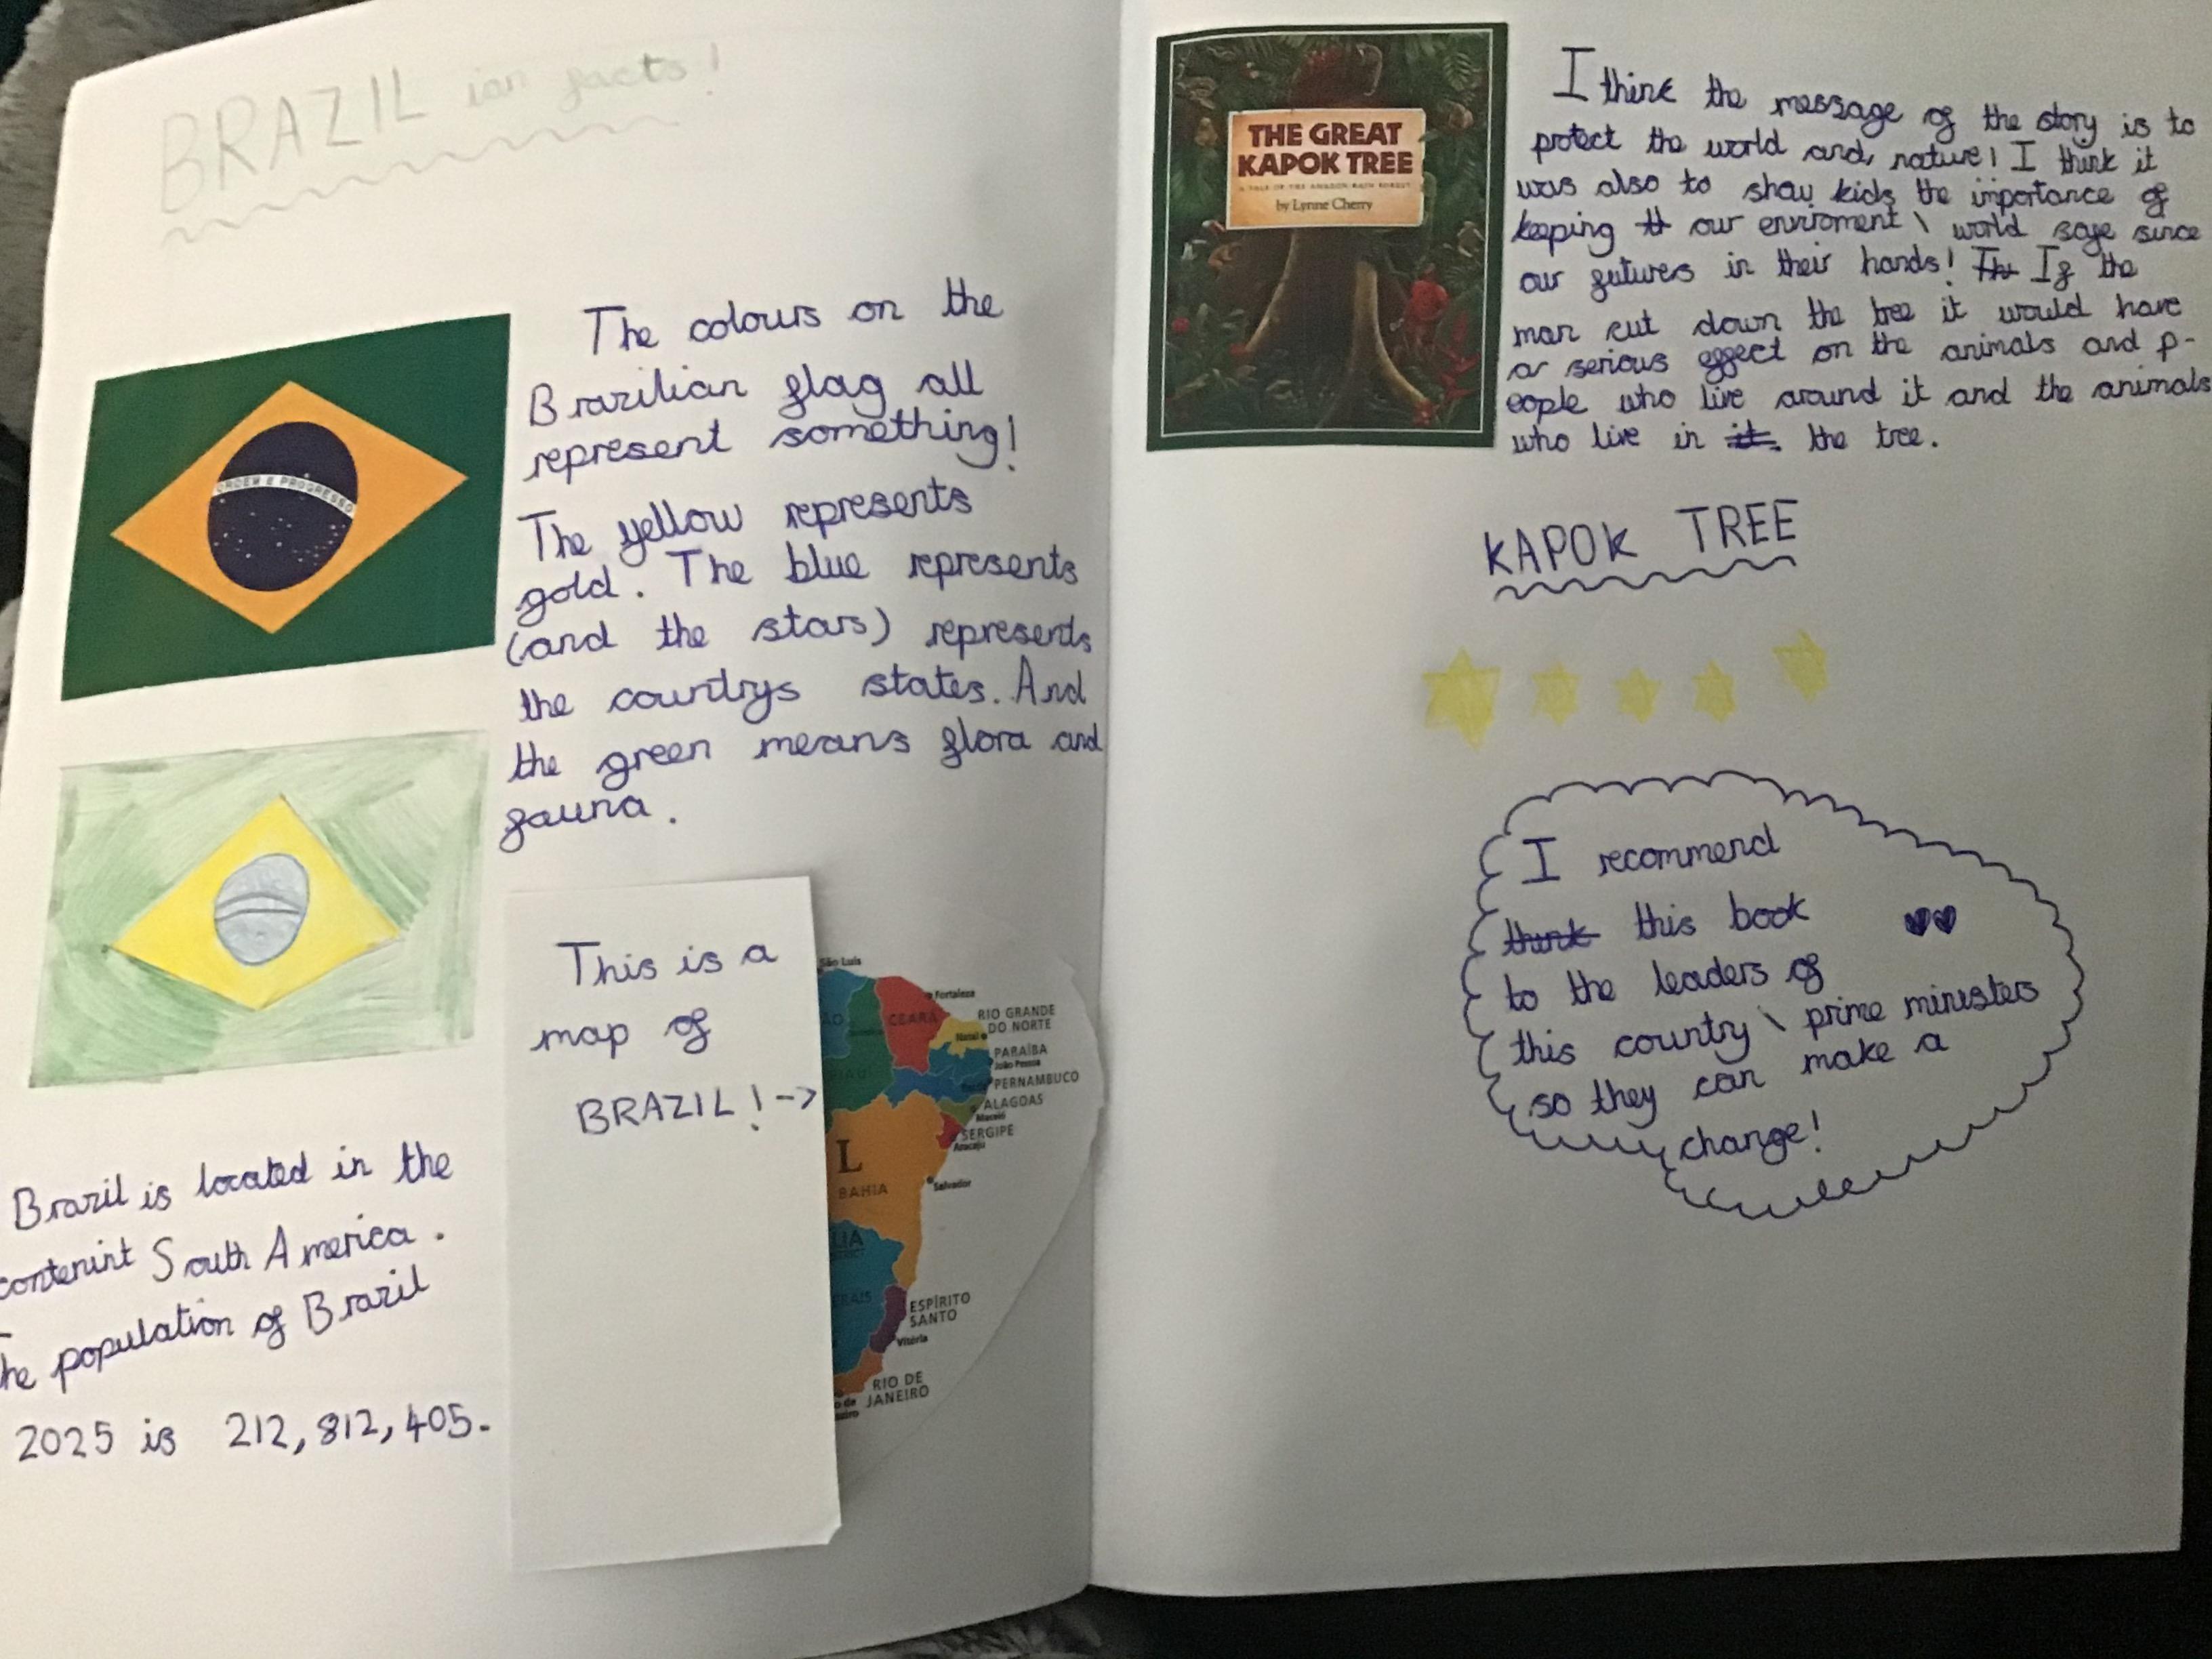 BRAZIL ian facts!
ORDEM E PROGRESSO
The colours on the
Brazilian flag all
represent something!
The yellow represents
gold. The blue represents
(and the stars) represents
the countrys states. And
the green means flora and
fauna.
This is a
map of
BRAZIL! ->
São Luís
Fortaleza
CEARÁ
RIO GRANDE
DO NORTE
Natal
PARAÍBA
João Pessoa
PERNAMBUCO
ALAGOAS
Maceió
SERGIPE
Aracaju
L
BAHIA
Salvador
ESPÍRITO
SANTO
Vitória
RIO DE
JANEIRO
Brazil is located in the
contenint South America.
he population of Brazil
2025 is 212,812,405.
THE GREAT
KAPOK TREE
A TALE OF THE AMAZON RAIN FOREST
by Lynne Cherry
I think the message of the story is to
protect the world and, nature! I think it
was also to show kids the importance of
keeping our enviroment \ world safe since
our futures in their hands! If the
man cut down the tree it would have
a serious effect on the animals and p-
eople who live around it and the animals
who live in it. the tree.
KAPOK TREE
I recommend
think this book
to the leaders of
this country \ prime ministers
so they can make a
change!